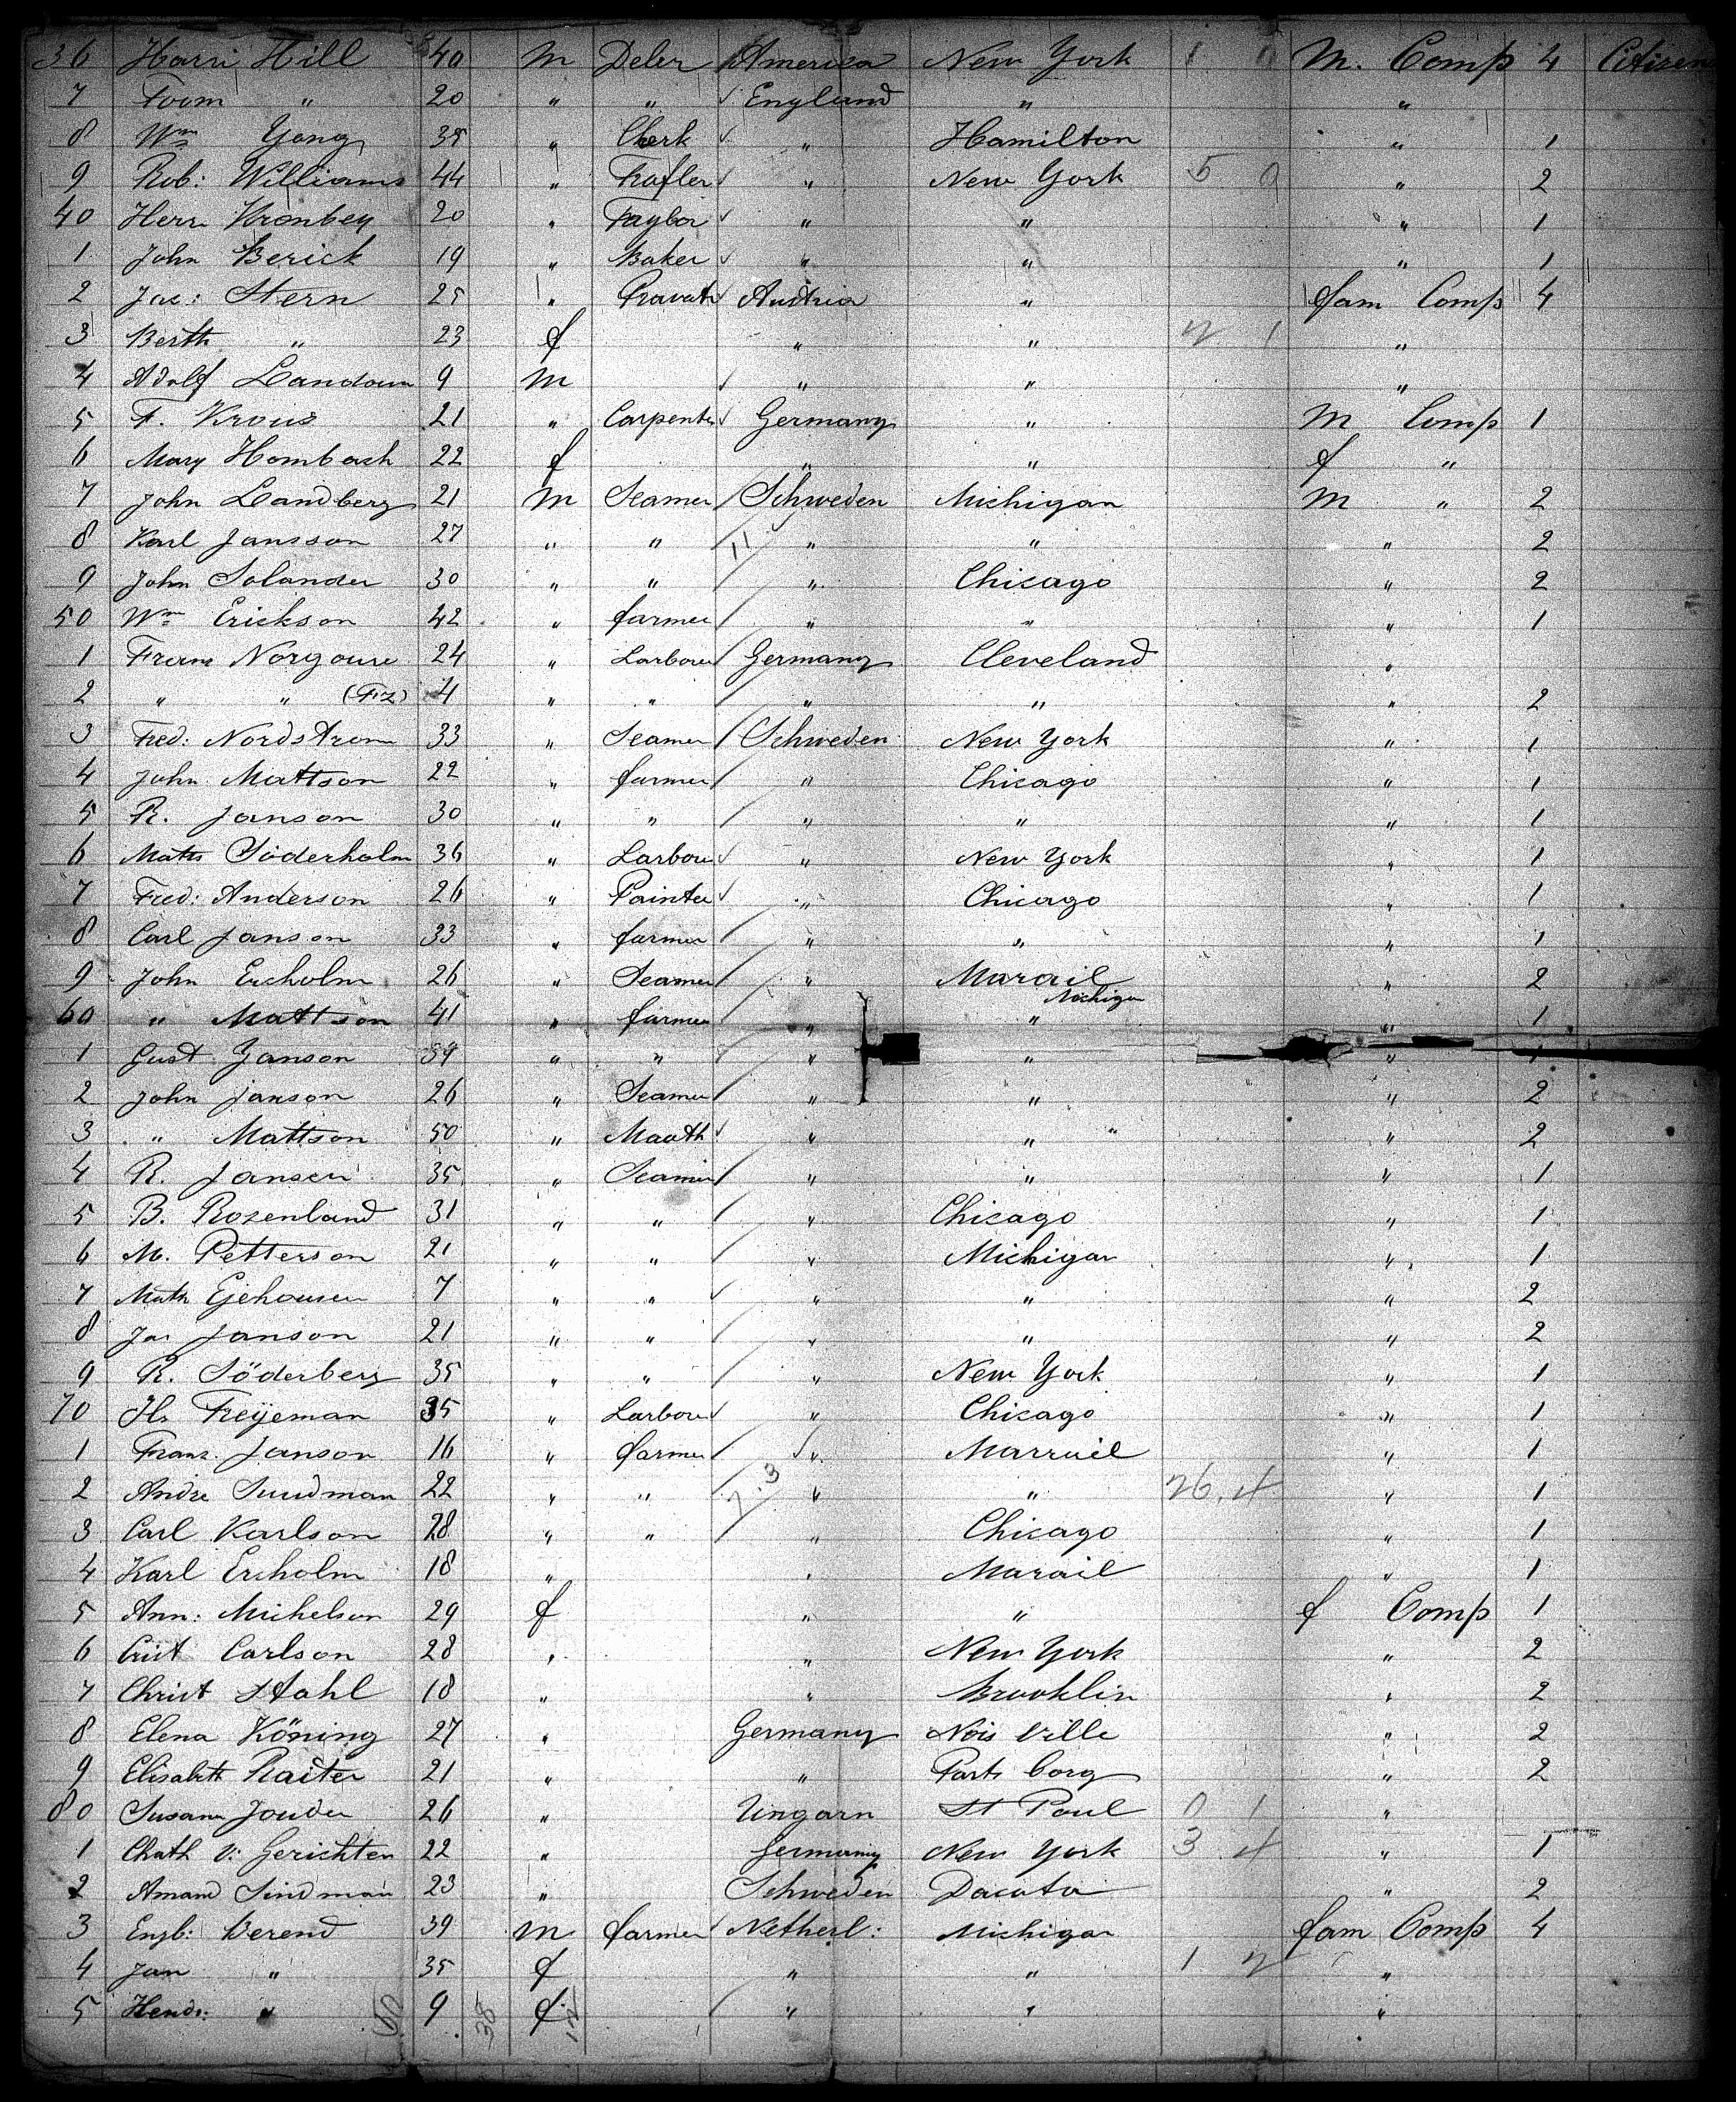 36 Harri Hill 40 m Deler America New York 1 0 M. Comp 4 Citizen
7 Foom " 20 " " England " "
8 Wm Yong 35 " Clerk " Hamilton " 1
9 Rob: Williams 44 " " New York 5 0 " 2
40 Herr 20 " Taylor " " " 1
1 John Berick 19 " Baker " " " 1
2 Jac: Stern 25 " Pravate Austria " fam Comp 4
3 Berth " 23 f " " 2 1 "
4 Adolf Landown 9 m " " "
5 F. Krous 21 " Carpenter Germany " M Comp 1
6 Mary Hombach 22 f " " f "
7 John Landberg 21 M Seamen Schweden Michigan M " 2
8 Karl Jansson 27 " " 11 " " " 2
9 John Solander 30 " " " Chicago " 2
50 Wm Erickson 42 " farmer " " " 1
1 Frans Norgoure 24 " Larbour Germany Cleveland "
2 " " (Fiz) 4 " " " " " 2
3 Fred: Nordstrom 33 " Seamen Schweden New York " 1
4 John Mattson 22 " farmer " Chicago " 1
5 R. Janson 30 " " " " " 1
6 Matts Söderholm 36 " Larbour " New York " 1
7 Fred: Anderson 26 " Painter " Chicago " 1
8 Carl Janson 33 " farmer " " " 1
9 John Ercholm 26 " Seamen " Marail " 2
Michigan
60 " Mattson 41 " farmer " " " 1
1 Gust Janson 59 " " " " " 1
2 John Janson 26 " Seamen " " " 2
3 " Mattson 50 " " " " " 2
4 R. Jansen 35 " Seamen " " " 1
5 B. Rozenland 31 " " " Chicago " 1
6 M. Petterson 21 " " " Michigan " 1
7 Math Ejehousen 7 " " " " " 2
8 Jas Janson 21 " " " " " 2
9 R. Söderberg 35 " " " New York " 1
70 Hs Freÿeman 35 " Larbour " Chicago " 1
1 Franz. Janson 16 " farmer " Marrail " 1
2 Andre Sundman 22 " " 7.3 " " 26.4 " 1
3 Carl Karlson 28 " " " Chicago " 1
4 Karl Ercholm 18 " " Marail " 1
5 Ann: Michelson 29 f " " f Comp 1
6 Crist Carlson 28 " " New York " 2
7 Christ Stahl 18 " " Brooklin " 2
8 Elena Köning 27 " Germany Nois ville " 2
9 Elisabett Raiter 21 " " Ports borg " 2
80 Susann Jouder 26 " Ungarn St Poul 0 1 "
1 Chath v: Gerichten 22 " Germany New York 3 4 " 1
2 Amand Sindman 23 " Schweden Dacota " 2
3 Engb: Berend 39 m farmer Netherl: Michigan fam Comp 4
4 Jan " 35 f " " 1 2 "
5 Hendr: " 9 f " " "
50 38 12